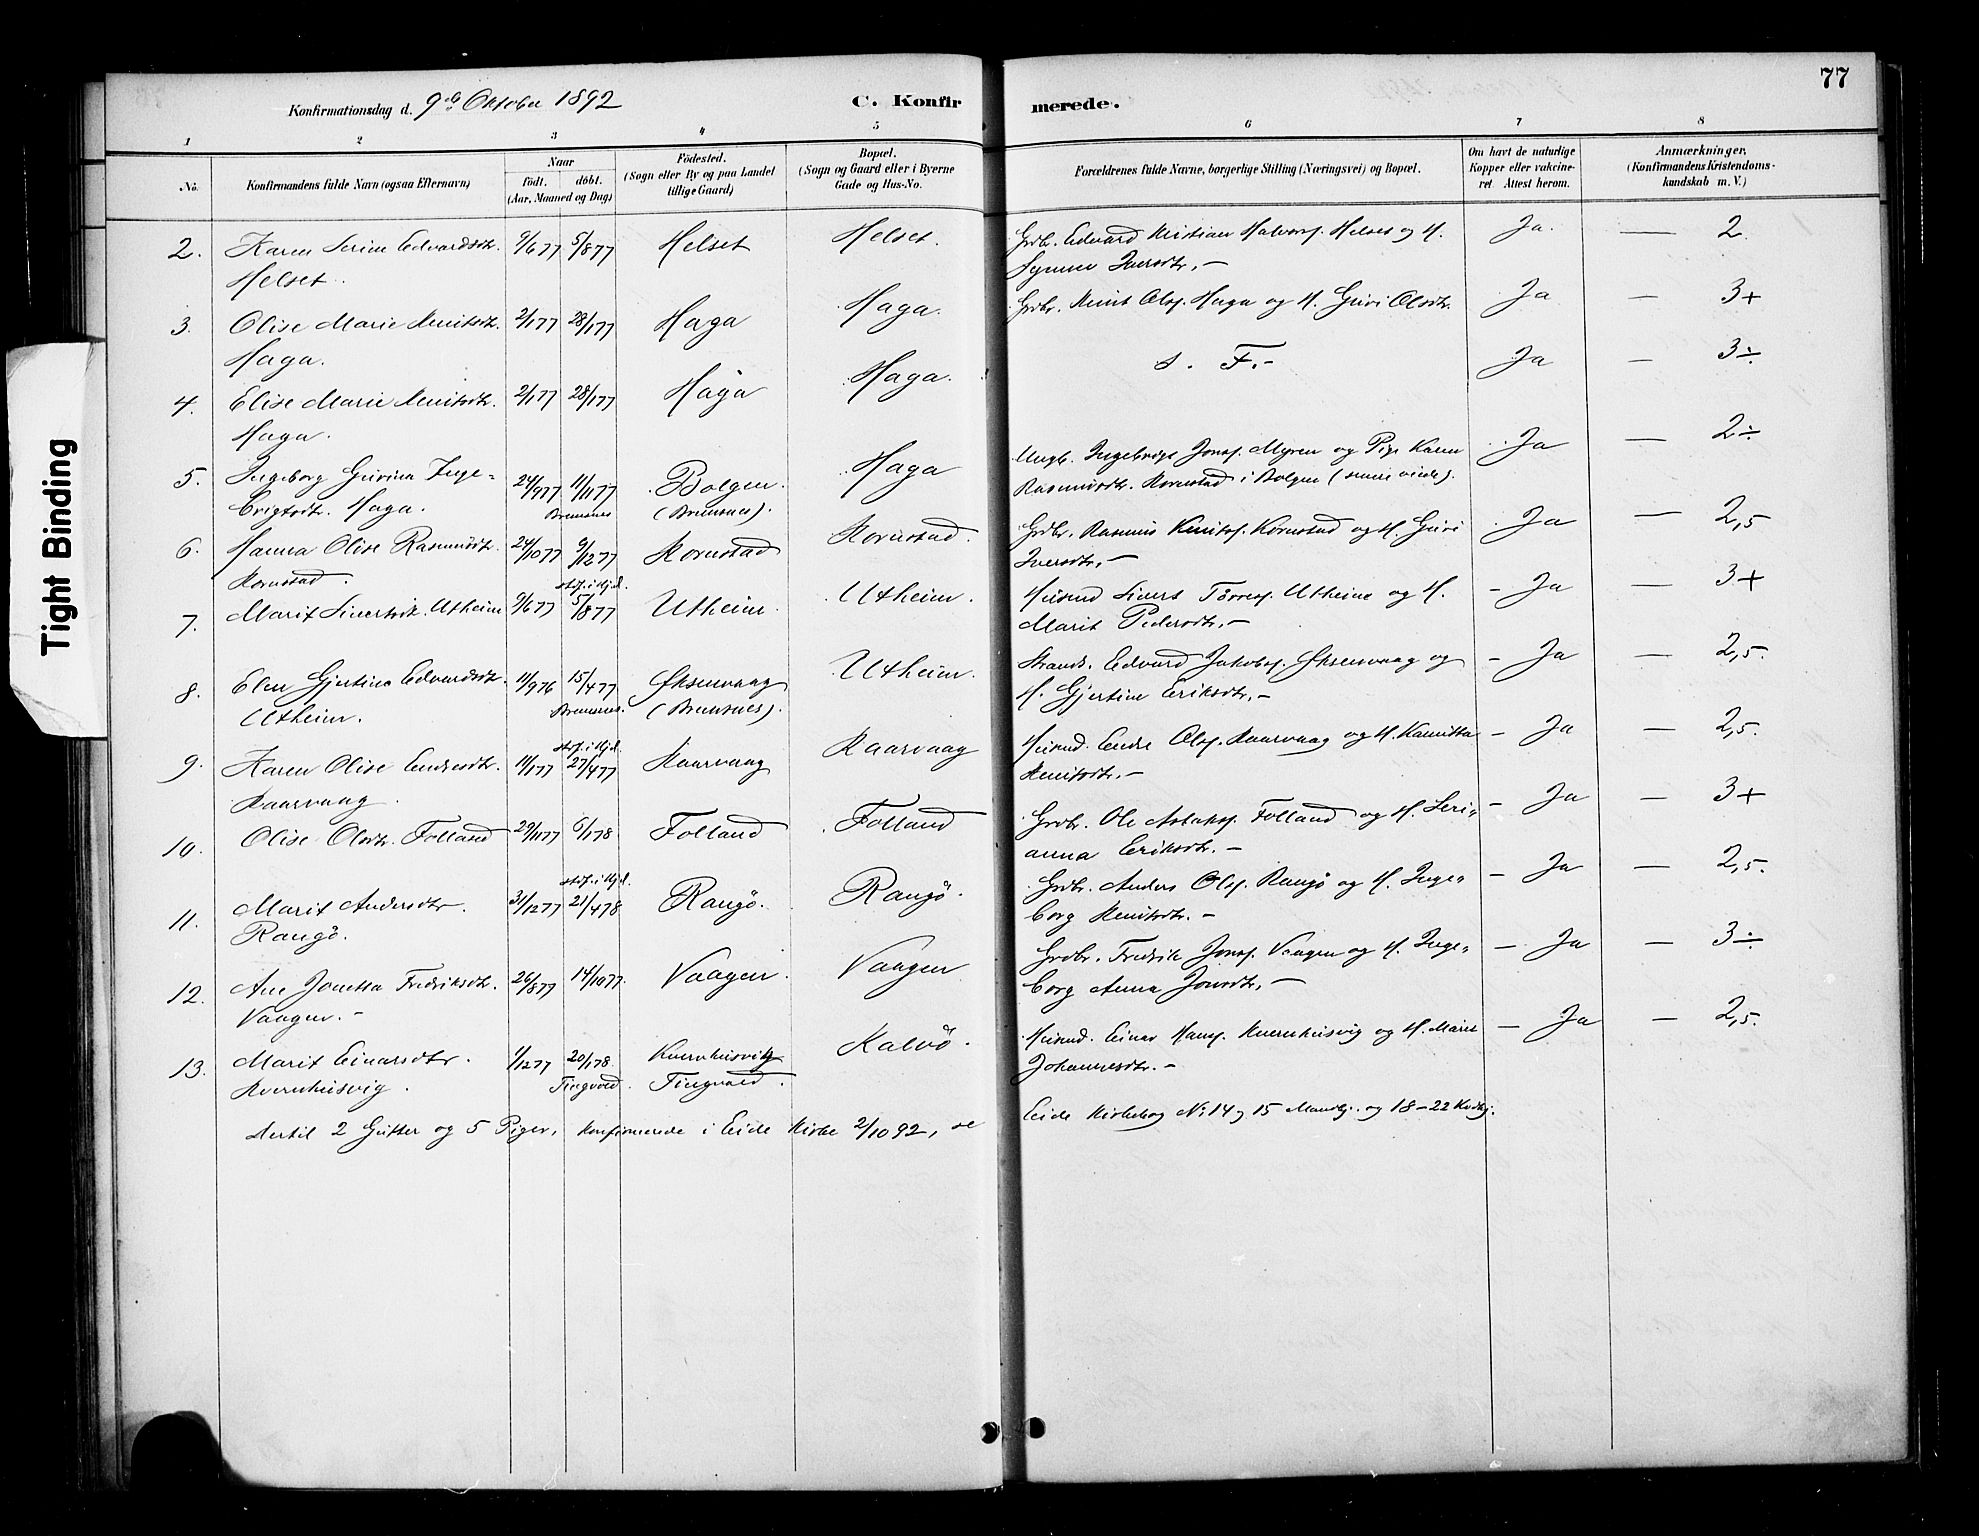 77
Konfirmationsdag d. 9de Oktober 1892
C. Konfirmerede.
1 2 3 4 5 6 7 8
No.
Konfirmandens fulde Navn (ogsaa Efternavn)
Naar
födt. döbt.
(Aar, Maaned og Dag)
Födested.
(Sogn eller By og paa Landet
tillige Gaard)
Bopæl.
(Sogn og Gaard eller i Byerne
Gade og Hus-No.
Forældrenes fulde Navne, borgerlige Stilling (Næringsvei) og Bopæl.
Om havt de naturlige
Kopper eller vakcine-
ret. Attest herom.
Anmærkninger,
(Konfirmandens Kristendoms-
kundskab m. V.)
2. Karen Serine Edvardsdtr. 9/6 77 5/8 77 Helset Helset. Grdbr. Edvard Kristian Halvors. Helset og H. Ja. — 2
Helset. Synnev Iversdtr. —
3. Olise Marie Knutsdtr. 2/1 77 28/1 77 Haga Haga. Grdbr. Knut Ols. Haga og H. Guri Olsdtr. Ja — 3+
Haga.
4. Elise Marie Knutsdtr. 2/1 77 28/1 77 Haga Haga. s. F. - Ja — 3÷
Haga.
5. Ingeborg Gurina Inge- 24/9 77 11/11 77 Bolgen. Haga Ungk. Ingebrigt Jons. Myren og Pige Karen Ja — 2÷
brigtsdtr. Haga. Bremsnes (Bremsnes). Rasmusdtr. Kornstad i Bolgen (senere viede).
6. Hanna Olise Rasmusdtr. 24/10 77 9/12 77 Kornstad Kornstad. Grdbr. Rasmus Knuts. Kornstad og H. Guri Ja — 2,5
Kornstad. Iversdtr. —
stadf. i Kj. d.
7. Marit Sivertsdt. Utheim 9/6 77 5/8 77 Utheim. Utheim. Husmd Sivert Tørres. Utheim og H. — Ja — 3+
Marit Pedersdtr. —
8. Elen Gjertine Edvardsdtr. 11/9 76 15/4 77 Øksenvaag Utheim. Strands. Edvard Jakobs. Øksenvaag og — Ja — 2,5.
Utheim. Bremsnes. (Bremsnes). H. Gjertine Eriksdtr. —
stadf. i Kj. d.
9. Karen Olise Endresdtr. 11/1 77 27/4 77 Kaarvaag Kaarvaag Husmd. Endre Ols. Kaarvaag og H. — Ja — 2,5.
Kaarvaag. Knutsdtr. —
10. Olise Olsdtr. Folland 29/11 77 6/1 78 Folland Folland Grdbr. Ole Aslaks. Folland og H. Seri- — Ja — 3+
anna Eriksdtr. —
stadf. i Kj. d.
11. Marit Andersdtr. 31/12 77 21/4 78 Rangö. Rangö. Grdbr. Anders Ols. Rangö og H. Inge- — Ja — 2,5.
Rangö. borg Knutsdtr. —
12. Ane Jonetta Fredriksdtr. 26/8 77 14/10 77. Vaagen. Vaagen Grdbr. Fredrik Jons. Vaagen og H. Inge- — Ja — 3÷
Vaagen. — borg Anna Jonsdtr. —
13. Marit Einarsdtr. 1/12 77 20/1 78 Kvernhusvik Kalvö. Husmd. Einar Hans. Kvernhusvig og H. Marit — Ja — 2,5.
Kvernhusvig. Tingvold. Tingvold. Johannesdtr. —
Dertil 2 Gutter og 5 Piger, konfirmerede i Eide Kirke 2/10 92, se Eide Kirkebog No 14 og 15 Mandkj. og 18-22 Kvdkj.
Tight Binding